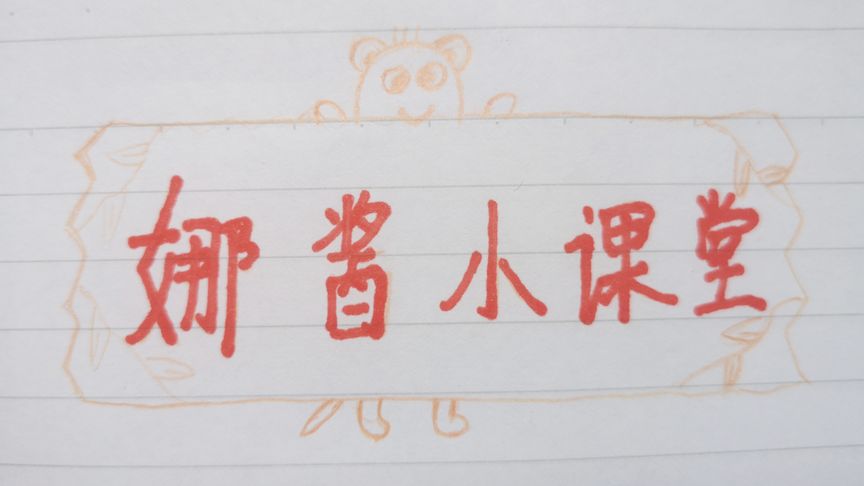 娜酱小课堂